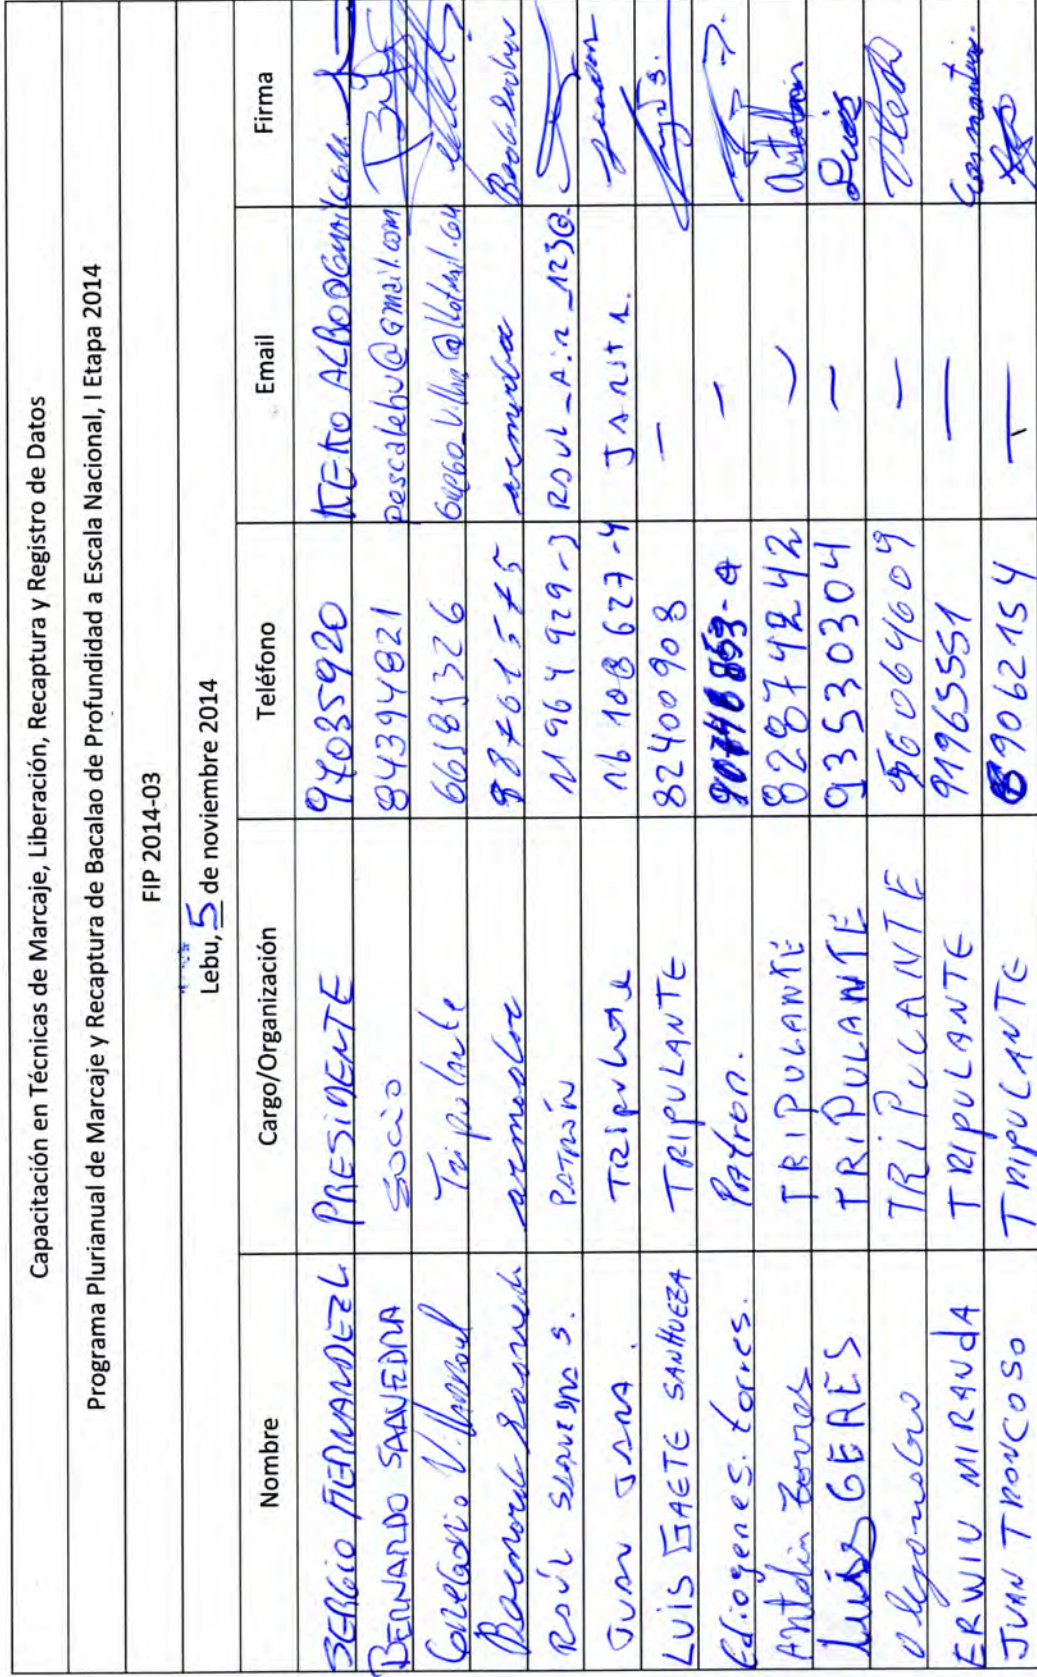 Capacitación en Técnicas de Marcaje, Liberación, Recaptura y Registro de Datos
Programa Plurianual de Marcaje y Recaptura de Bacalao de Profundidad a Escala Nacional, I Etapa 2014
FIP 2014-03
Lebu, 5 de noviembre 2014
Nombre Cargo/Organización Teléfono Email Firma
SERGIO HERNANDEZ L. PRESIDENTE 97035920
BERNARDO SAAVEDRA SOCIO 84394821 pescalebu@gmail.com
Tripulante 66585326
armador
RAÚL SAAVEDRA S. PATRÓN 11964929-3
JUAN JARA Tripulante 16 108 627-4
LUIS GAETE SANHUEZA TRIPULANTE 82400908 —
Ediogenes. torres. PATRON. —
Antolin Torres TRIPULANTE 82874242 — Antolin
Luis GERES TRIPULANTE 93530304 — Luis
TRIPULANTE 56064609 —
ERWIN MIRANDA TRIPULANTE 91965551 —
JUAN TRONCOSO TRIPULANTE 89062154 —